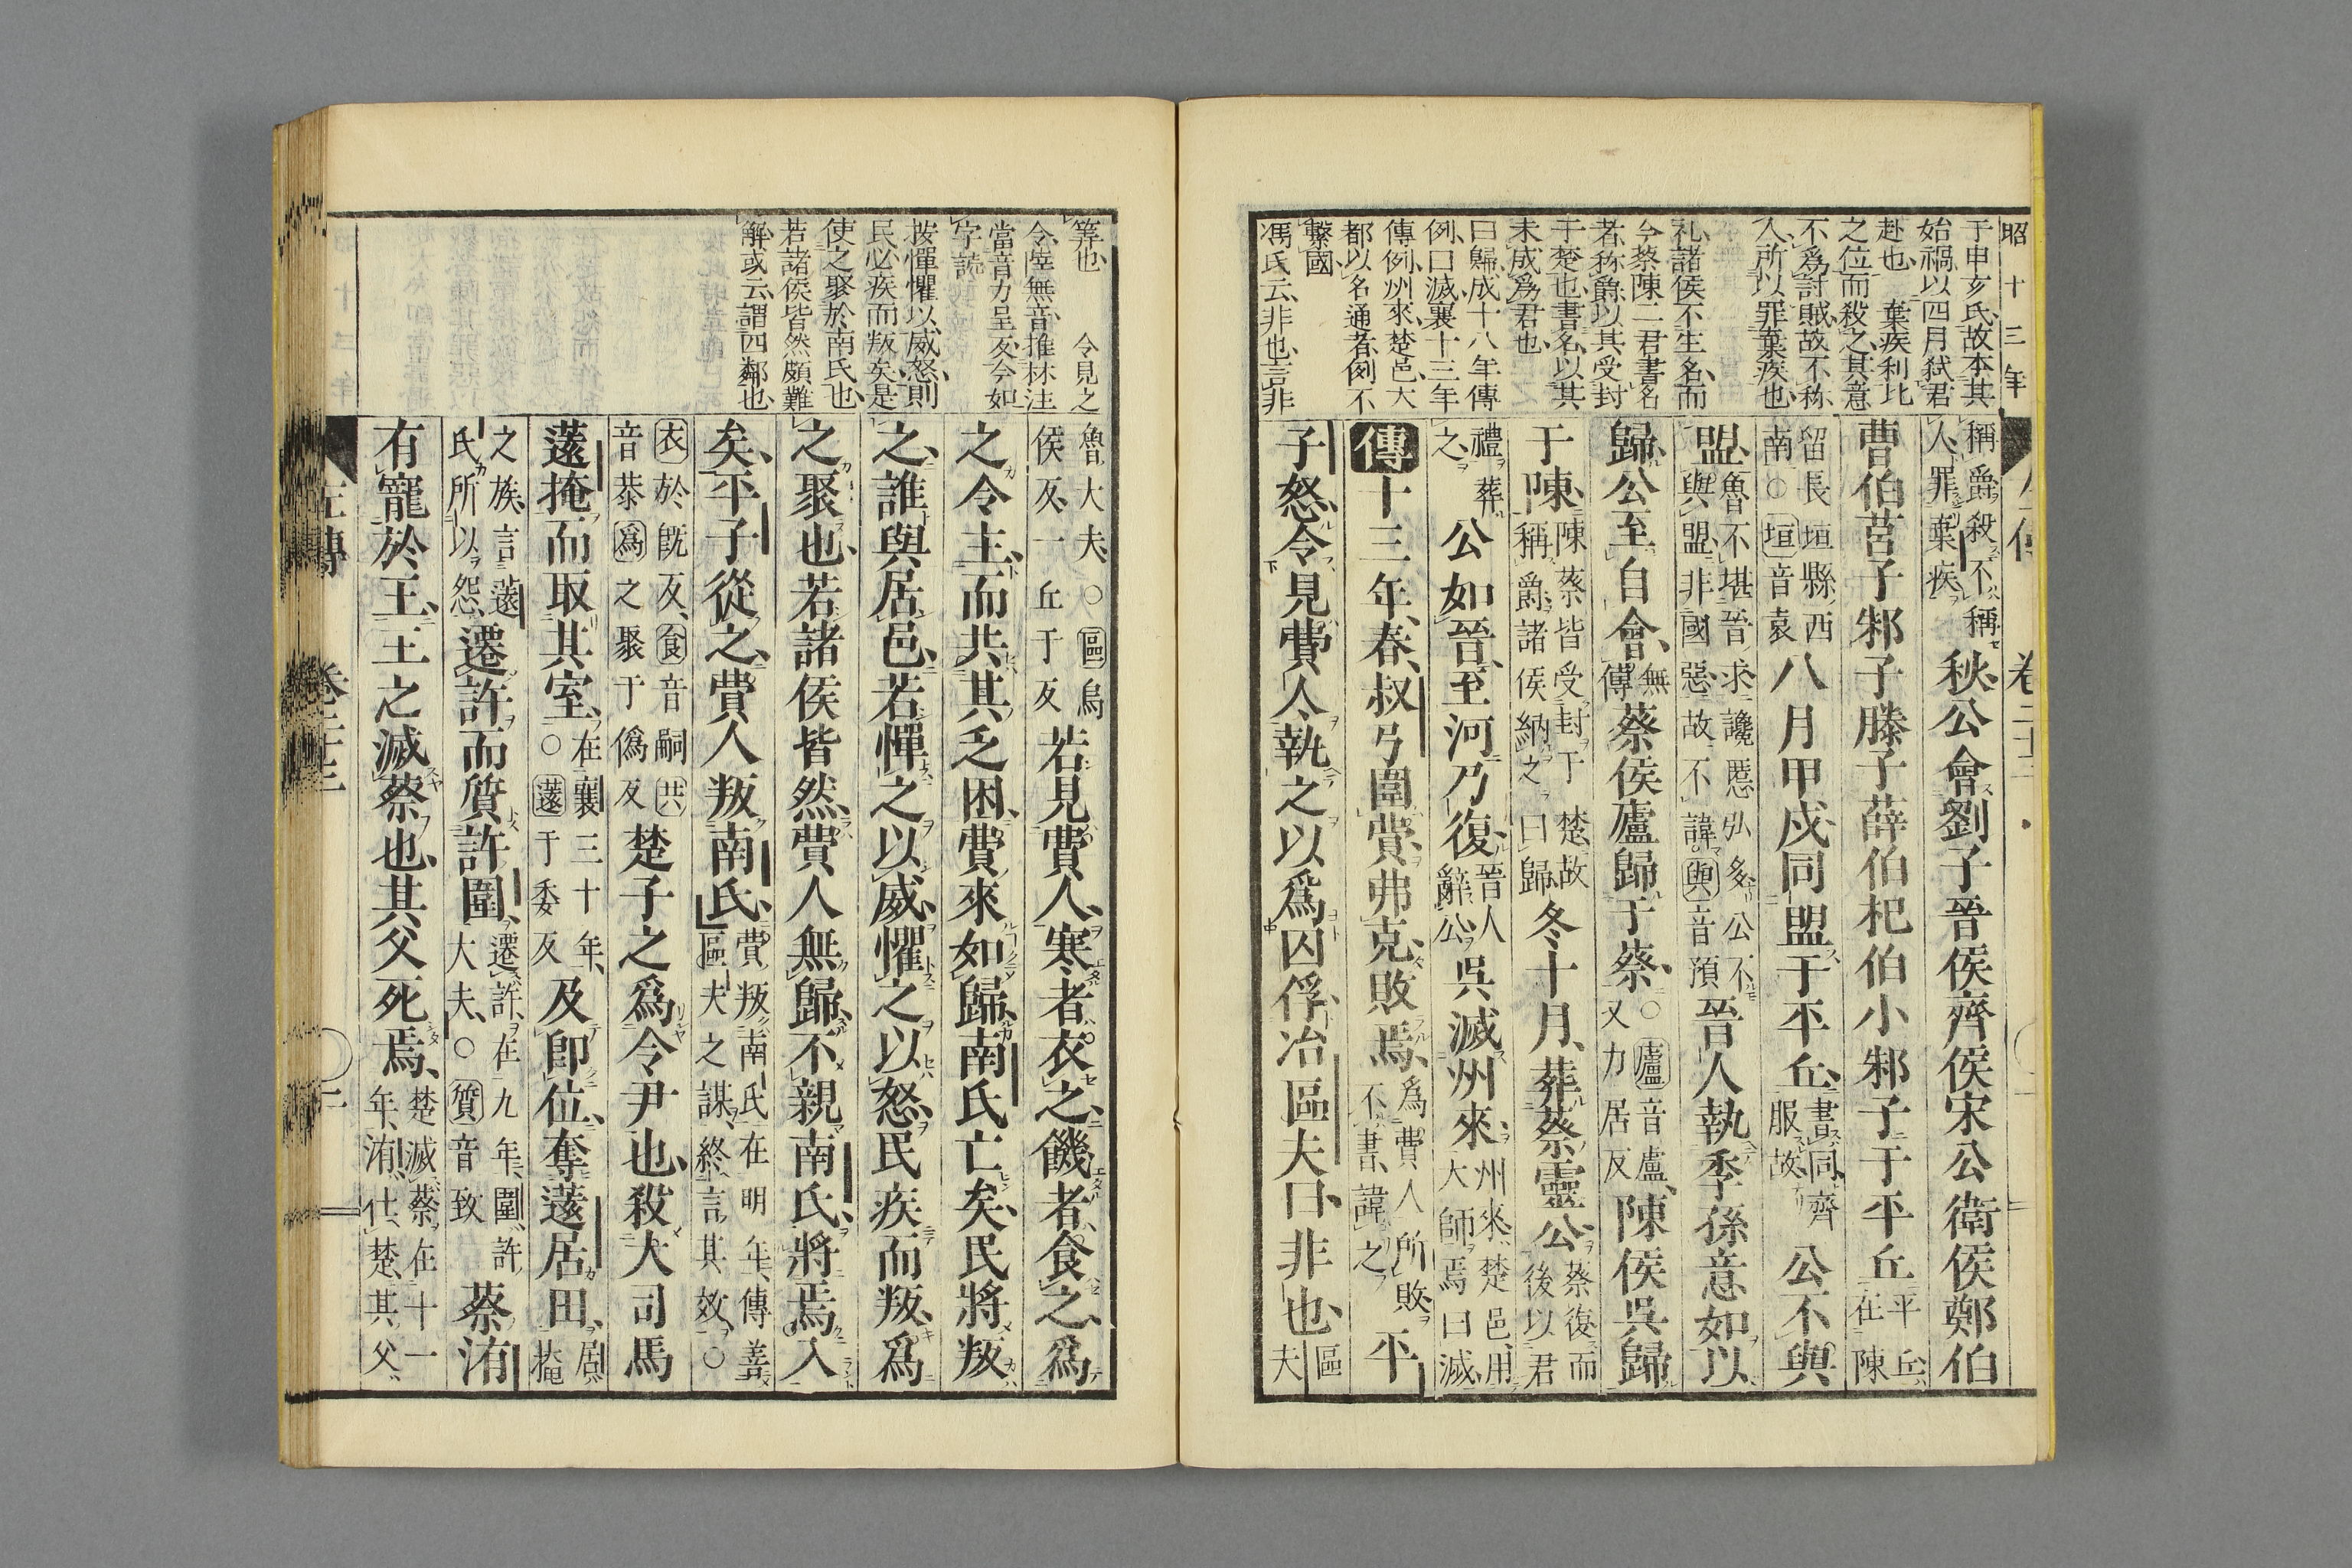 昭十三年
于申亥氏故本其
始禍以四月弑君
赴也　棄疾利比
之位而殺之其意
不爲討賊故不称
人所以罪棄疾也
礼諸侯不生名而
今蔡陳二君書名
者称爵以其受封
于楚也書名以其
未成爲君也
曰歸成十八年傳
例曰滅襄十三年
傳例州來楚邑大
都以名通者例不
繫國
馮氏云非也言非
稱爵殺不稱人罪棄疾秋公會劉子晉侯齊侯宋公衛侯鄭伯
曹伯莒子邾子滕子薛伯杞伯小邾子于平丘平丘在陳
留長垣縣西南○垣音袁八月甲戍同盟于平丘書同齊服故公不與
盟魯不堪晉求讒慝弘多公不與盟非國惡故不諱與音預晉人執季孫意如以
歸公至自會無傳蔡侯廬歸于蔡○廬音盧又力居反陳侯吳歸
于陳陳蔡皆受封于楚故稱爵諸侯納之曰歸冬十月葬蔡靈公蔡復而後以君
禮葬之公如晉至河乃復晉人辭公吳滅州來州來楚邑用大師焉曰滅
傳十三年春叔弓圍費弗克敗焉爲費人所敗不書諱之平
子怒令見費人執之以爲囚俘冶區夫曰非也區夫
筭也　令見之
令陸無音推林注
當音力呈反今如
字誌
按憚懼以威怒則
民必疾而叛矣是
使之聚於南氏也
若諸侯皆然頗難
解或云謂四鄰也
魯大夫○區烏侯反一丘于反若見費人寒者衣之饑者食之爲
之令主而共其乏困費來如歸南氏亡矣民將叛
之誰與居邑若憚之以威懼之以怒民疾而叛爲
之聚也若諸侯皆然費人無歸不親南氏將焉入
矣平子從之費人叛南氏費叛南氏在明年傳善區夫之謀終言其效○
衣於旣反食音嗣共音恭爲之聚于僞反楚子之爲令尹也殺大司馬
薳掩而取其室在襄三十年○薳于委反及卽位奪薳居田居掩
之族言薳氏所以怨遷許而質許圍遷許在九年圍許大夫○質音致蔡洧
有寵於王王之滅蔡也其父死焉楚滅蔡在十一年洧仕楚其父